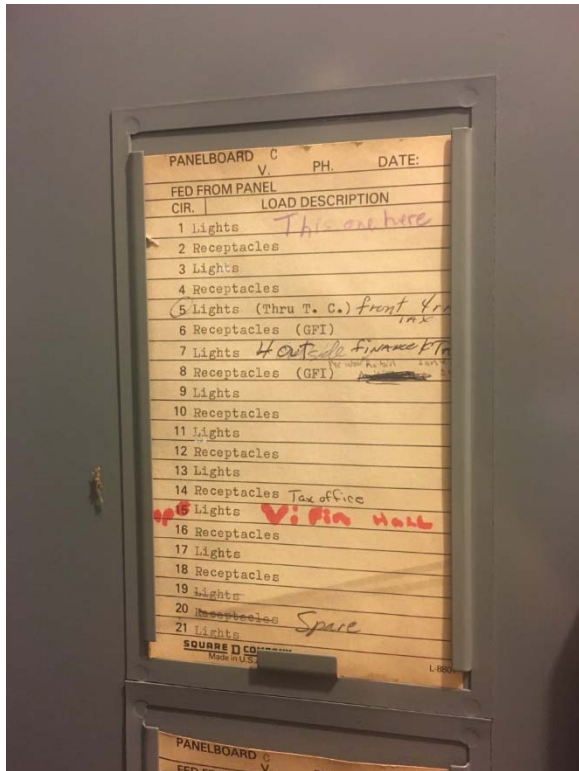 PANELBOARD C
V. PH. DATE:
FED FROM PANEL
CIR. LOAD DESCRIPTION
1 Lights This one here
2 Receptacles
3 Lights
4 Receptacles
5 Lights (Thru T. C.) front 4
6 Receptacles (GFI)
7 Lights 4 outside finance
8 Receptacles (GFI)
9 Lights
10 Receptacles
11 Lights
12 Receptacles
13 Lights
14 Receptacles Tax office
15 Lights HALL
16 Receptacles
17 Lights
18 Receptacles
19 Lights
20 Receptacles Spare
21 Lights
SQUARE D
Made in U.S.
PANELBOARD C
V